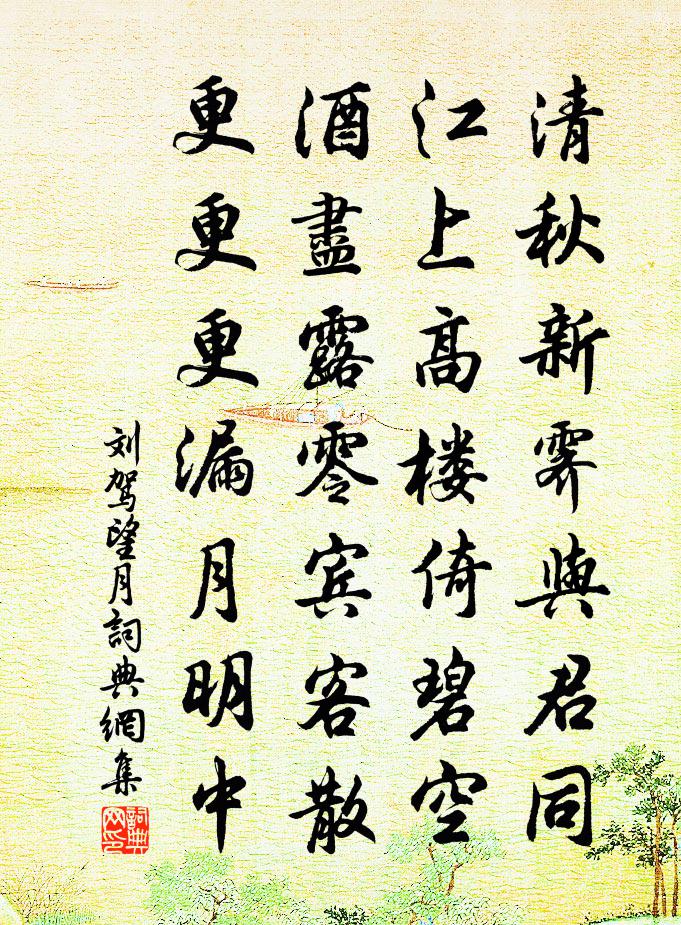 清秋新霽與君同
江上高楼倚碧空
酒盡露零宾客散
更更更漏月明中
刘驾望月詞典網集
詞典网印